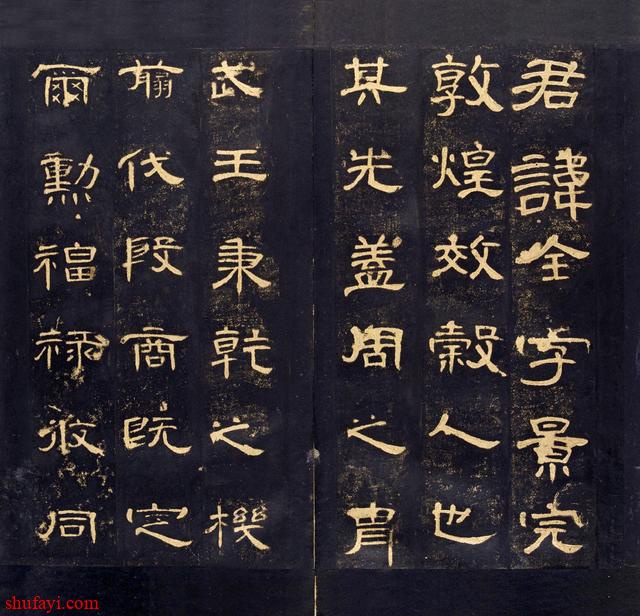 君諱全字景完
敦煌效穀人也
其先蓋周之胄
武王秉乾之機
翦伐殷商既定
爾勳福祿攸同
shufayi.com